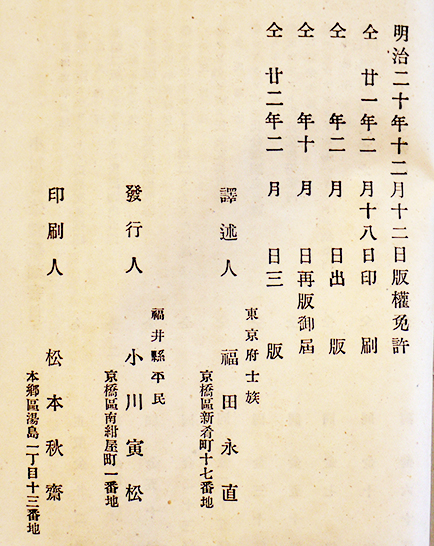 明治二十年十二月十二日版權免許
仝 廿一年二月十八日印刷
仝 年二月 日出版
仝 年十月 日再版御屆
仝 廿二年二月 日三版
東京府士族
譯述人 福田永直
京橋區新肴町十七番地
福井縣平民
發行人 小川寅松
京橋區南紺屋町一番地
印刷人 松本秋齋
本鄕區湯島一丁目十三番地